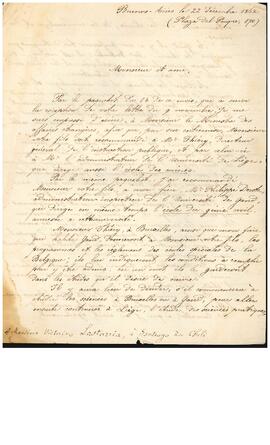 Buenos-Aires le 22 Décembre 1862
(Plaza del Parque, 190)
Monsieur et ami,
Par le paquebot du 14 de ce mois, qui a
reception de votre lettre du 9 novembre, je me
suis empressé d'écrire, à Monsieur le Ministre des
affaires étrangères, afin que par son entremise, Monsieur
votre fils soit recommandé à Mr Thiéry, Directeur
général de l'instruction publique, et par celui-ci
à Mr l'administrateur de l'Université de Liége,
qui dirige aussi l'école des mines.
Par le même paquebot, j'ai recommandé
Monsieur votre fils, à mon frère, Mr Philippe
administrateur-inspecteur de l'Université de Gand,
qui dirige en même temps l'école du génie civil,
annexée à cette université.
Monsieur Thiéry, à Bruxelles, ainsi que mon frère
à Gand, fourniront à Monsieur votre fils, les
programmes et les règlements des écoles spéciales de la
Belgique; ils lui indiqueront les conditions à remplir
pour y être admis; en un mot ils le guideront
dans les études qu'il devra suivre.
Il y aura lieu de décider, s'il commencera à
étudier les sciences à Bruxelles ou à Gand, pour aller
ensuite continuer à Liége, l'étude des sciences pratiques,
A Monsieur Victorino Lastarria, à Santiago du Chili